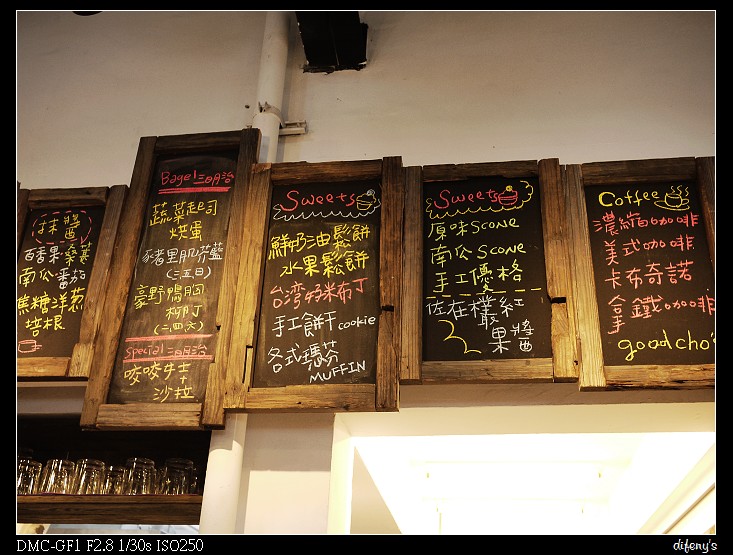 抹醬
百香果.桑葚
南公.番茄
焦糖洋蔥
培根
Bagel三明治
蔬菜起司
烘蛋
豬里肌芥藍
(二五日)
豪野鴨胸
柳丁
(二四六)
Special三明治
咬咬牛士
+
沙拉
Sweets
鮮奶油鬆餅
水果鬆餅
台湾好米布丁
手工餅干cookie
各式瑪芬
MUFFIN
Sweets
原味Scone
南公Scone
手工優格
佐在樸紅
果醬
Coffee
濃縮咖啡
美式咖啡
卡布奇諾
拿鐵咖啡
good cho's
DMC-GF1 F2.8 1/30s ISO250
difeny's